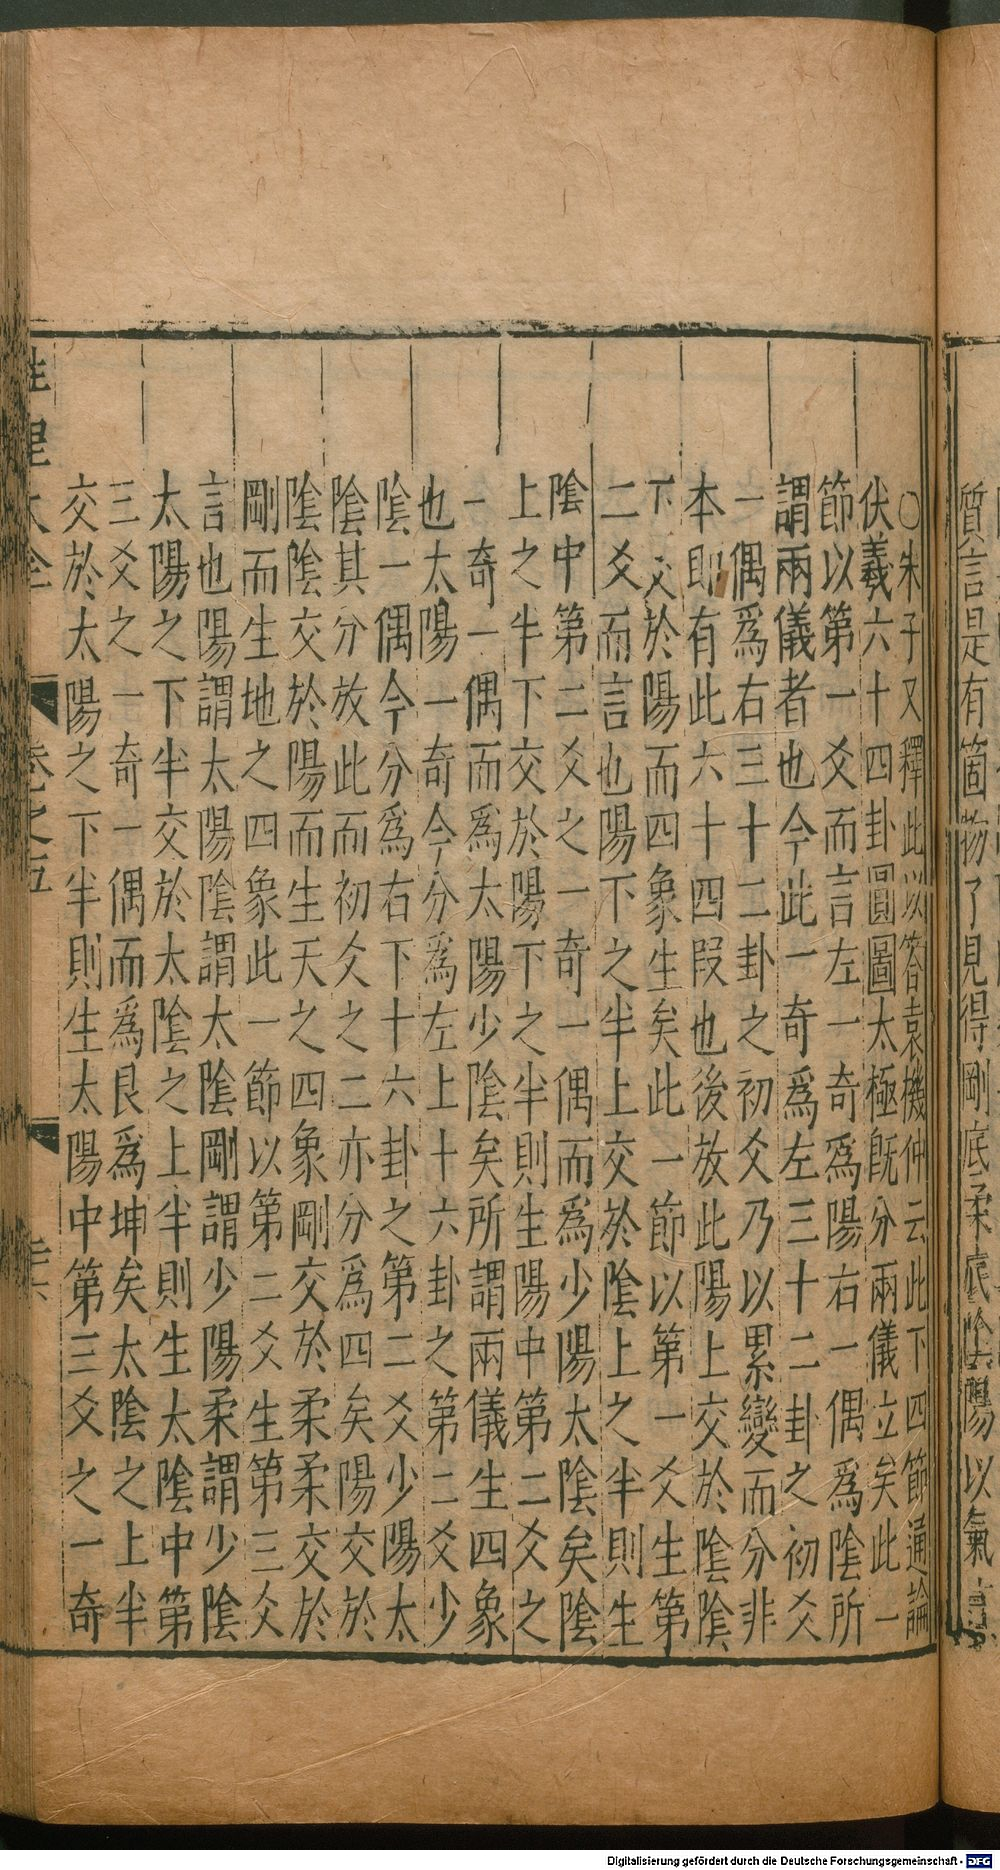 質言是有箇物了見得剛底柔底陰陽以氣言
○朱子又釋此以答袁機仲云此下四節通論
伏羲六十四卦圓圖太極旣分兩儀立矣此一
節以第一爻而言左一奇爲陽右一偶爲陰所
謂兩儀者也今此一奇爲左三十二卦之初爻
一偶爲右三十二卦之初爻乃以累變而分非
本即有此六十四段也後放此陽上交於陰陰
下交於陽而四象生矣此一節以第一爻生第
二爻而言也陽下之半上交於陰上之半則生
陰中第二爻之一奇一偶而爲少陽太陰矣陰
上之半下交於陽下之半則生陽中第二爻之
一奇一偶而爲太陽少陰矣所謂兩儀生四象
也太陽一奇今分爲左上十六卦之第二爻少
陰一偶今分爲右下十六卦之第二爻少陽太
陰其分放此而初爻之二亦分爲四矣陽交於
陰陰交於陽而生天之四象剛交於柔柔交於
剛而生地之四象此一節以第二爻生第三爻
言也陽謂太陽陰謂太陰剛謂少陽柔謂少陰
太陽之下半交於太陰之上半則生太陰中第
三爻之一奇一偶而爲艮爲坤矣太陰之上半
交於太陽之下半則生太陽中第三爻之一奇
性理大全
卷之五